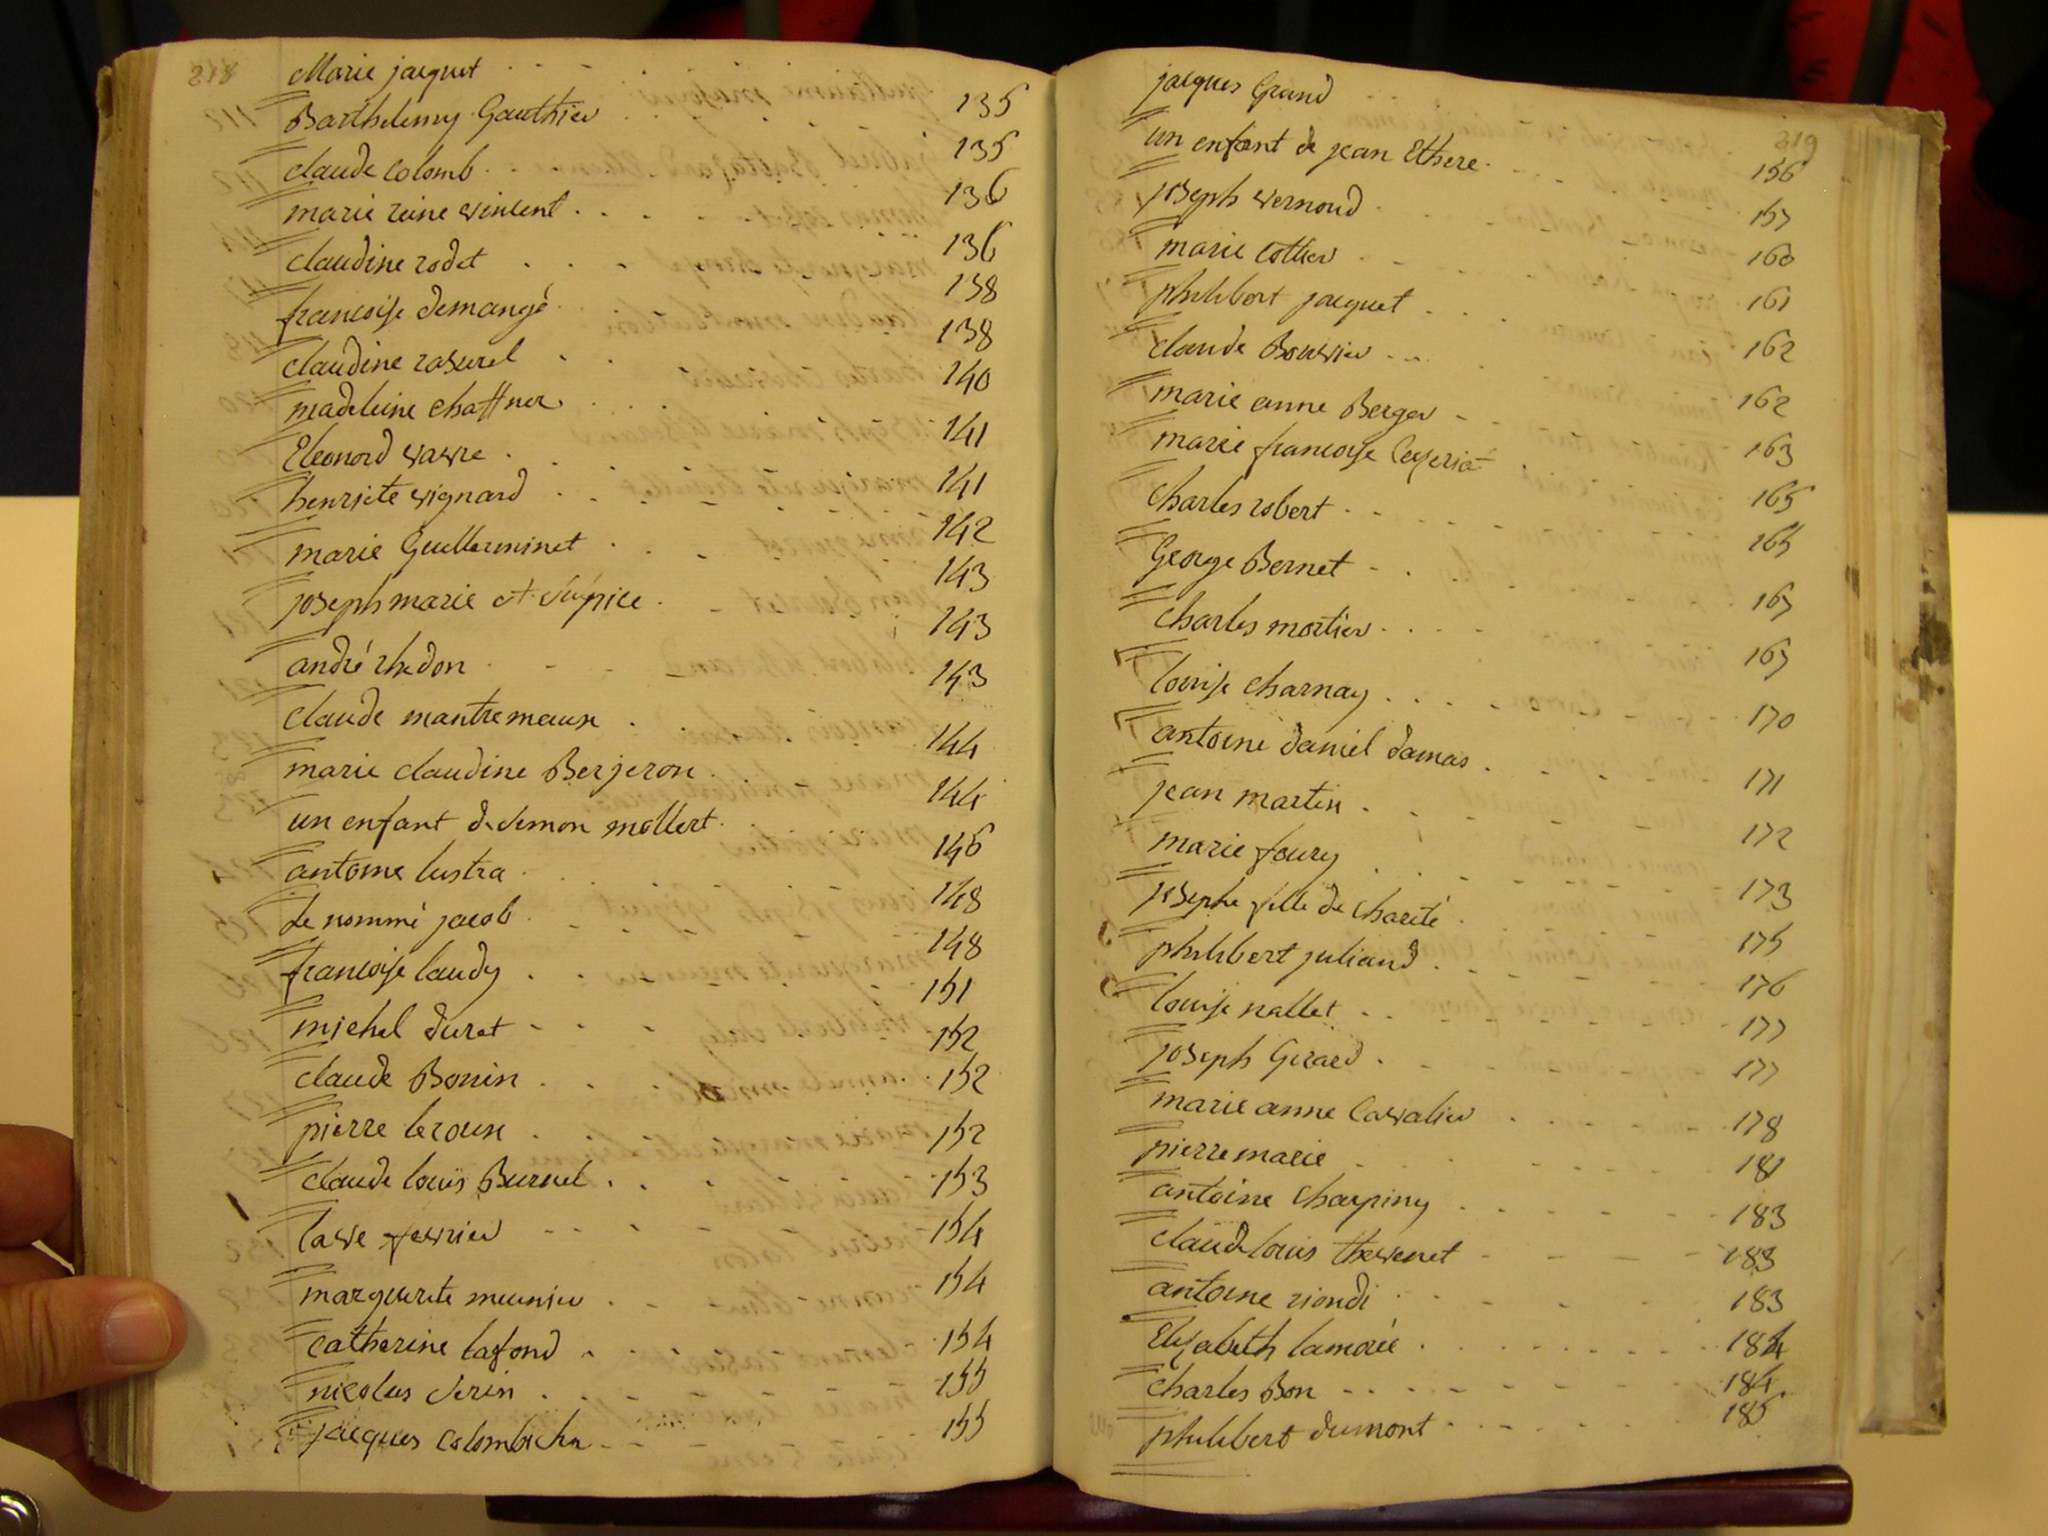 218
Marie jacquet . . . 135
Barthelemy Gauthier . . 135
claude colomb . . 136
marie reine vincent . . . 136
claudine rodet . . . 138
francoise demangé 138
claudine rosurel . . 140
madeleine chaffner . . . 141
Eleonord vavre . . 141
henriete vignard . . . 142
marie Guillerminet . . . 143
joseph marie st Sulpice . 143
andré rhedon . . . 143
claude mantremaux . . 144
marie claudine Berjeron . 144
un enfant de simon mollert . 146
antoine lustra . . 148
le nommé jacob . . 148
francoise laudy . . . 151
michel duret . . . 152
claude Bonin . . . 152
pierre leroux . . 152
claude louis Burnel . . . 153
lave fevrier . . . 154
marguerite meunier . . . 154
catherine lafond . . . 154
nicolas serin . . . 155
jacques colombicha . . . 155
219
jacques Grand . . 156
un enfant de jean Ethere . . . 157
joseph vernoud . . 160
marie cottier . . . 161
philibert jacquet . . . 162
claude Bouvier . . . 162
marie anne Berger . 163
marie francoise 165
charles robert . . . 165
George Bernet . . . 167
charles mortier . . . 167
louise charnay . . . 170
antoine daniel damas . . . 171
jean martin . . . 172
marie foury . . . 173
josephe fille de charité . 175
philibert juliand . . . 176
louise nallet . . . 177
joseph Girard . . . 177
marie anne cavalier . . . 178
pierre marie . . . 181
antoine charpiny . . . 183
claude louis thevenet . . . 183
antoine riondi . . . 183
Elizabeth lamorée . . . 184
charles Bon . . . 184
philibert dumont . . . 185